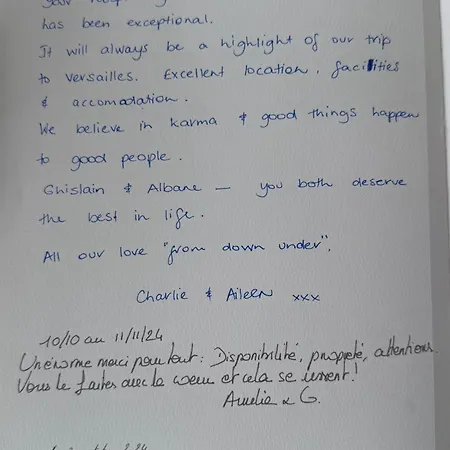 your
has been exceptional.
It will always be a highlight of our trip
to Versailles. Excellent location, facilities
& accomodation.
We believe in karma & good things happen
to good people.
Ghislain & Albane — you both deserve
the best in life.
All our love "from down under".
Charlie & Aileen xxx
10/10 au 11/11/24
Un énorme merci pour tout : Disponibilité, propreté, attentions.
Vous le faites avec le coeur et cela se ressent !
Amelia & G.